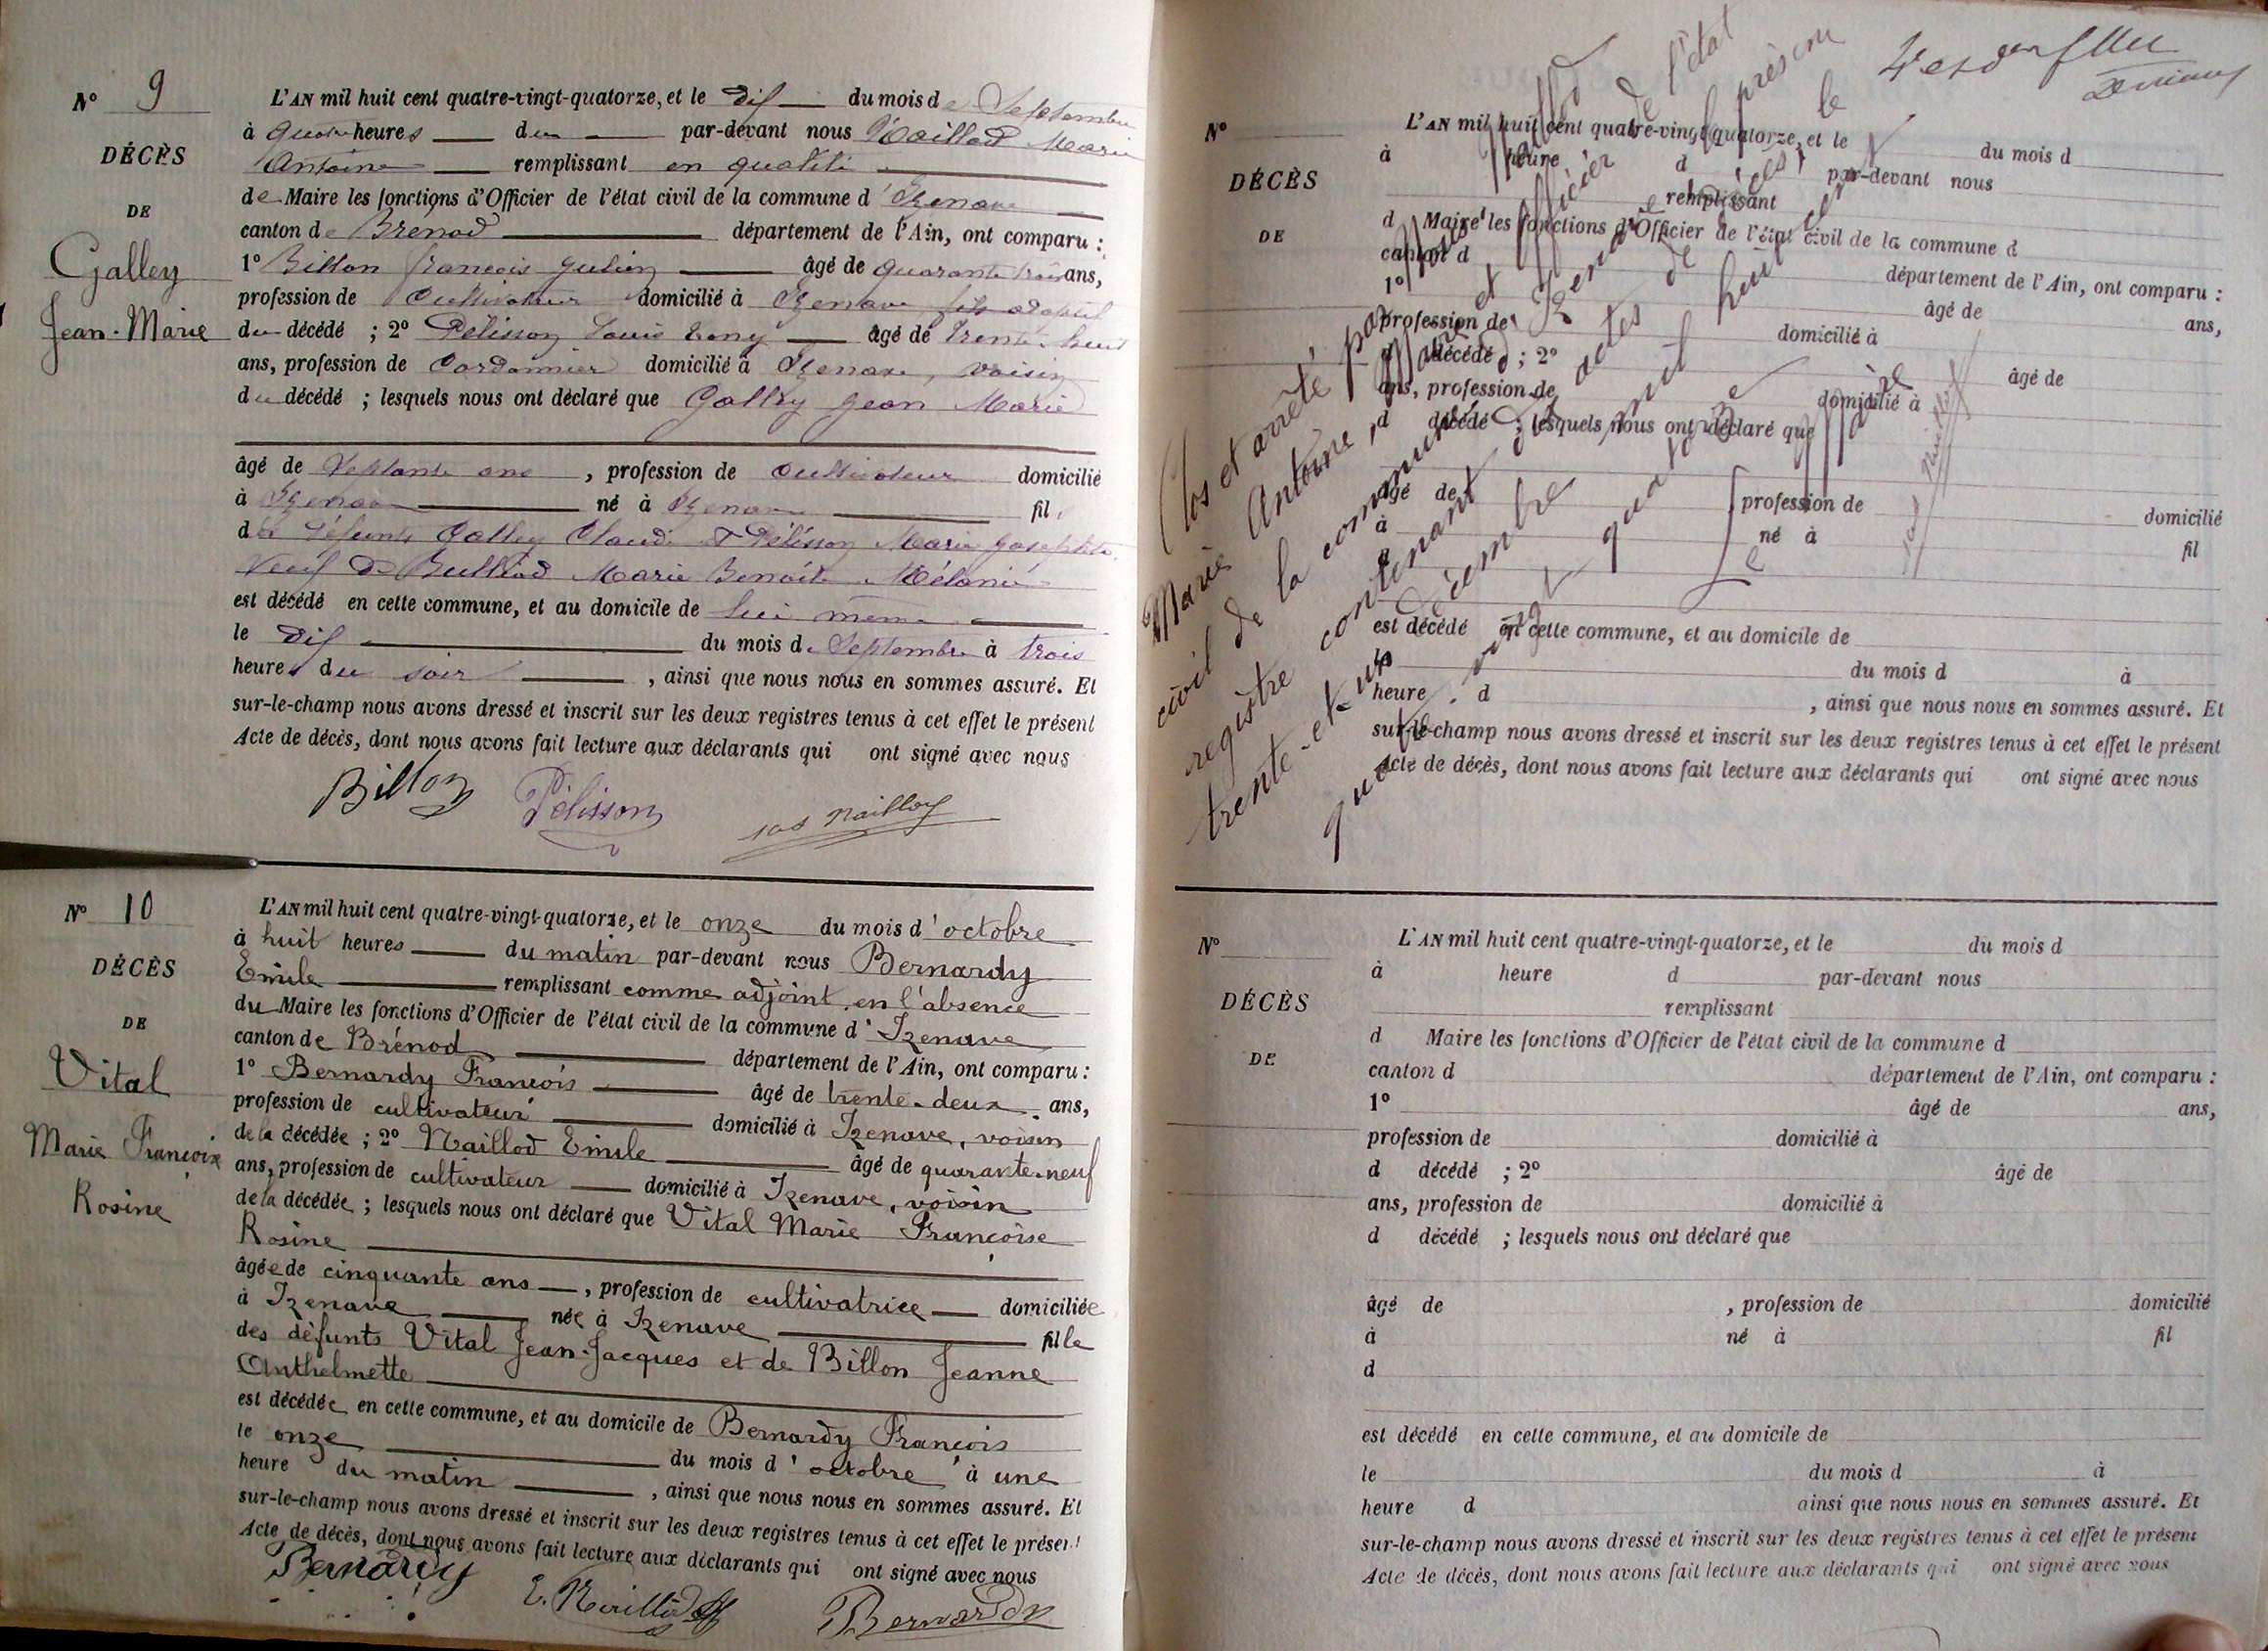 N° 9
DÉCÈS
DE
Galley
Jean-Marie
L'AN mil huit cent quatre-vingt-quatorze, et le dix du mois de Septembre
à quatre heures du par-devant nous Naillod Marie
Antoine remplissant en qualité
de Maire les fonctions d'Officier de l'état civil de la commune d'Izenave
canton de Brénod département de l'Ain, ont comparu :
1° Billon françois Julien âgé de quarante trois ans,
profession de Cultivateur domicilié à Izenave fils adoptif
du décédé ; 2° Pélisson Louis âgé de trente-huit
ans, profession de Cordonnier domicilié à Izenave, voisin
du décédé ; lesquels nous ont déclaré que Galley Jean Marie
âgé de Septante ans , profession de Cultivateur domicilié
à Izenave né à Izenave fil
des défunts Galley Claude & Pélisson Marie Josephte
Veuf de Marie Benoite Mélanie
est décédé en cette commune, et au domicile de lui même
le dix du mois de Septembre à trois
heures du soir , ainsi que nous nous en sommes assuré. Et
sur-le-champ nous avons dressé et inscrit sur les deux registres tenus à cet effet le présent
Acte de décès, dont nous avons fait lecture aux déclarants qui ont signé avec nous
Billon Pélisson Naillod
N° 10
DÉCÈS
DE
Vital
Marie Françoise
Rosine
L'AN mil huit cent quatre-vingt-quatorze, et le onze du mois d'octobre
à huit heures du matin par-devant nous Bernardy
Emile remplissant comme adjoint en l'absence
du Maire les fonctions d'Officier de l'état civil de la commune d'Izenave
canton de Brénod département de l'Ain, ont comparu :
1° Bernardy François âgé de trente-deux ans,
profession de cultivateur domicilié à Izenave, voisin
de la décédée ; 2° Naillod Emile âgé de quarante-neuf
ans, profession de cultivateur domicilié à Izenave, voisin
de la décédée ; lesquels nous ont déclaré que Vital Marie Françoise
Rosine
âgée de cinquante ans , profession de cultivatrice domiciliée
à Izenave née à Izenave fille
des défunts Vital Jean-Jacques et de Billon Jeanne
Anthelmette
est décédée en cette commune, et au domicile de Bernardy François
le onze du mois d'octobre à une
heure du matin , ainsi que nous nous en sommes assuré. Et
sur-le-champ nous avons dressé et inscrit sur les deux registres tenus à cet effet le présent
Acte de décès, dont nous avons fait lecture aux déclarants qui ont signé avec nous
Bernardy E. Naillod Bernardy
N°
DÉCÈS
DE
L'AN mil huit cent quatre-vingt-quatorze, et le du mois d
à heure d par-devant nous
remplissant
d Maire les fonctions d'Officier de l'état civil de la commune d
canton d département de l'Ain, ont comparu :
1° âgé de ans,
profession de domicilié à
d décédé ; 2° âgé de
ans, profession de domicilié à
d décédé ; lesquels nous ont déclaré que
âgé de profession de domicilié
à né à fil
d
est décédé en cette commune, et au domicile de
le du mois d à
heure d , ainsi que nous nous en sommes assuré. Et
sur-le-champ nous avons dressé et inscrit sur les deux registres tenus à cet effet le présent
Acte de décès, dont nous avons fait lecture aux déclarants qui ont signé avec nous
Clos et arrêté par Naillod
Marie Antoine, Maire et officier de l'état
civil de la commune d'Izenave le présent
registre contenant des actes de décès, le
trente-et-un décembre mil huit cent
quatre-vingt-quatorze
N°
DÉCÈS
DE
L'AN mil huit cent quatre-vingt-quatorze, et le du mois d
à heure d par-devant nous
remplissant
d Maire les fonctions d'Officier de l'état civil de la commune d
canton d département de l'Ain, ont comparu :
1° âgé de ans,
profession de domicilié à
d décédé ; 2° âgé de
ans, profession de domicilié à
d décédé ; lesquels nous ont déclaré que
âgé de , profession de domicilié
à né à fil
d
est décédé en cette commune, et au domicile de
le du mois d à
heure d ainsi que nous nous en sommes assuré. Et
sur-le-champ nous avons dressé et inscrit sur les deux registres tenus à cet effet le présent
Acte de décès, dont nous avons fait lecture aux déclarants qui ont signé avec nous